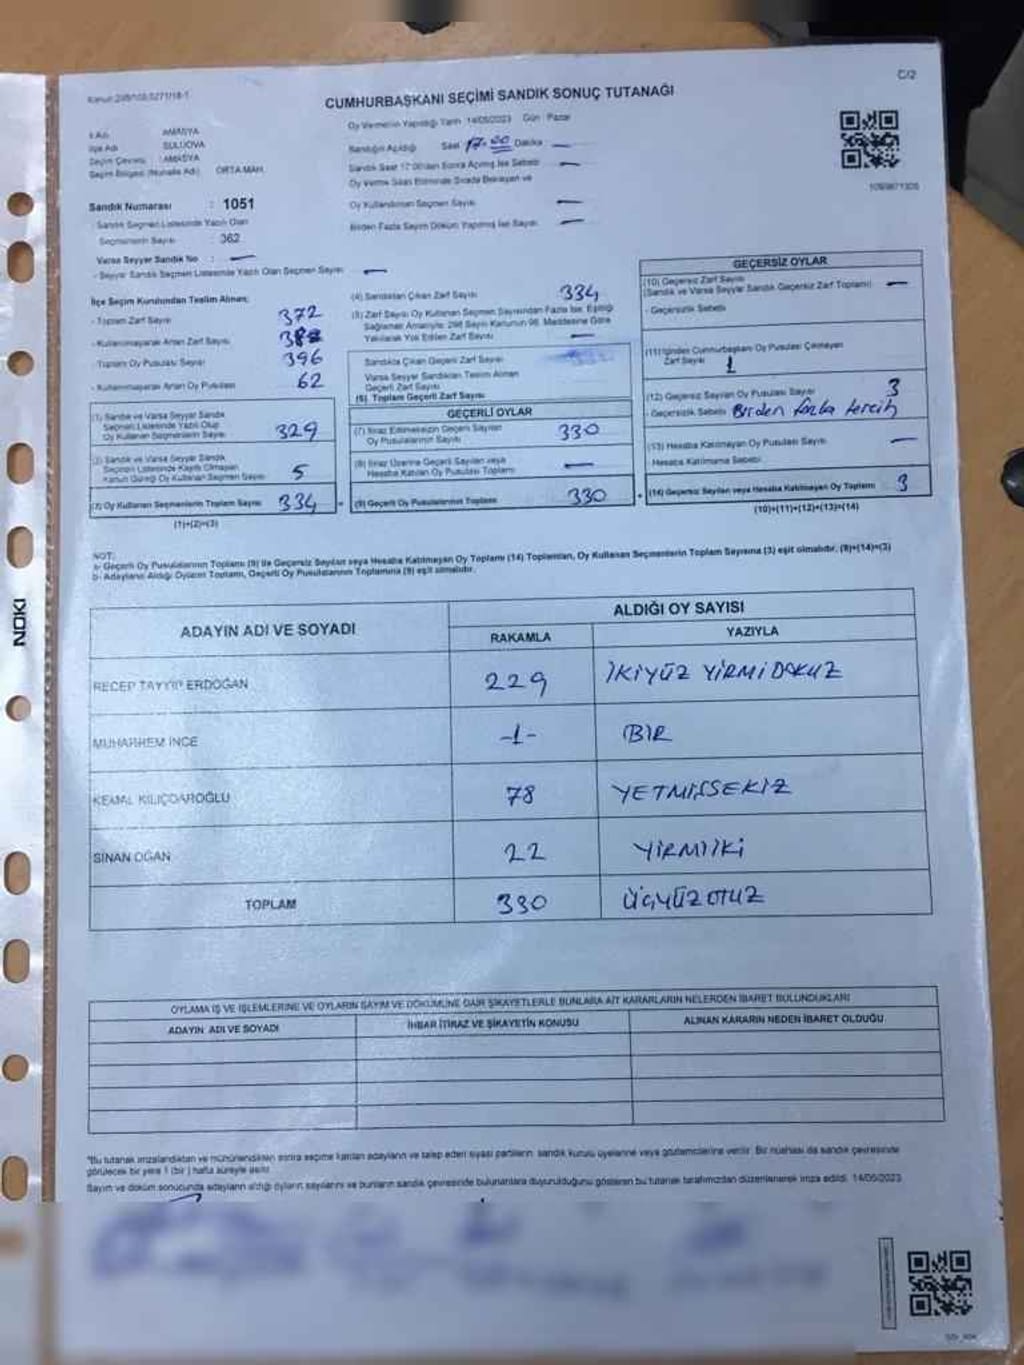 C/2
CUMHURBAŞKANI SEÇİMİ SANDIK SONUÇ TUTANAĞI
İli Adı AMASYA
İlçe Adı SULUOVA
Seçim Çevresi : AMASYA
Seçim Bölgesi (Mahalle Adı) ORTA MAH.
Oy Vermenin Yapıldığı Tarih 14/05/2023 Gün : Pazar
Sandığın Açıldığı Saat 17.00 Dakika —
Sandık Saat 17:00'den Sonra Açılmış İse Sebebi —
Oy Verme Saati Bitiminde Sırada Bekleyen ve
Oy Kullandırılan Seçmen Sayısı —
Birden Fazla Sayım Döküm Yapılmış İse Sayısı —
Sandık Numarası : 1051
- Sandık Seçmen Listesinde Yazılı Olan
Seçmenlerin Sayısı : 362
Varsa Seyyar Sandık No : —
- Seyyar Sandık Seçmen Listesinde Yazılı Olan Seçmen Sayısı —
İlçe Seçim Kurulundan Teslim Alınan;
- Toplam Zarf Sayısı 372
- Kullanılmayarak Artan Zarf Sayısı
- Toplam Oy Pusulası Sayısı 396
- Kullanılmayarak Artan Oy Pusulası 62
(1) Sandık ve Varsa Seyyar Sandık
Seçmen Listesinde Yazılı Olup
Oy Kullanan Seçmenlerin Sayısı 329
(2) Sandık ve Varsa Seyyar Sandık
Seçmen Listesinde Kayıtlı Olmayan
Kanun Gereği Oy Kullanan Seçmen Sayısı 5
(3) Oy Kullanan Seçmenlerin Toplam Sayısı 334
(1)+(2)=(3)
(4) Sandıktan Çıkan Zarf Sayısı 334
(5) Zarf Sayısı Oy Kullanan Seçmen Sayısından Fazla İse, Eşitliği
Sağlamak Amacıyla; 298 Sayılı Kanunun 98. Maddesine Göre
Yakılarak Yok Edilen Zarf Sayısı —
Sandıkta Çıkan Geçerli Zarf Sayısı
Varsa Seyyar Sandıktan Teslim Alınan
Geçerli Zarf Sayısı
(6) Toplam Geçerli Zarf Sayısı
GEÇERLİ OYLAR
(7) İtiraz Edilmeksizin Geçerli Sayılan
Oy Pusulalarının Sayısı 330
(8) İtiraz Üzerine Geçerli Sayılan veya
Hesaba Katılan Oy Pusulası Toplamı —
(9) Geçerli Oy Pusulalarının Toplamı 330
GEÇERSİZ OYLAR
(10) Geçersiz Zarf Sayısı
(Sandık ve Varsa Seyyar Sandık Geçersiz Zarf Toplamı) —
- Geçersizlik Sebebi
(11) İçinden Cumhurbaşkanı Oy Pusulası Çıkmayan
Zarf Sayısı 1
(12) Geçersiz Sayılan Oy Pusulası Sayısı 3
- Geçersizlik Sebebi Birden fazla tercih
(13) Hesaba Katılmayan Oy Pusulası Sayısı —
Hesaba Katılmama Sebebi
(14) Geçersiz Sayılan veya Hesaba Katılmayan Oy Toplamı 3
(10)+(11)+(12)+(13)=(14)
NOT:
a- Geçerli Oy Pusulalarının Toplamı (9) ile Geçersiz Sayılan veya Hesaba Katılmayan Oy Toplamı (14) Toplamları, Oy Kullanan Seçmenlerin Toplam Sayısına (3) eşit olmalıdır, (9)+(14)=(3)
b- Adayların Aldığı Oyların Toplamı, Geçerli Oy Pusulalarının Toplamına (9) eşit olmalıdır.
ADAYIN ADI VE SOYADI
ALDIĞI OY SAYISI
RAKAMLA YAZIYLA
RECEP TAYYİP ERDOĞAN 229 İKİYÜZ YİRMİDOKUZ
MUHARREM İNCE -1- BİR
KEMAL KILIÇDAROĞLU 78 YETMİŞSEKİZ
SİNAN OĞAN 22 YİRMİİKİ
TOPLAM 330 ÜÇYÜZOTUZ
OYLAMA İŞ VE İŞLEMLERİNE VE OYLARIN SAYIM VE DÖKÜMÜNE DAİR ŞİKAYETLERLE BUNLARA AİT KARARLARIN NELERDEN İBARET BULUNDUKLARI
ADAYIN ADI VE SOYADI İHBAR İTİRAZ VE ŞİKAYETİN KONUSU ALINAN KARARIN NEDEN İBARET OLDUĞU
*Bu tutanak imzalandıktan ve mühürlendikten sonra seçime katılan adayların ve talep eden siyasi partilerin sandık kurulu üyelerine veya gözlemcilerine verilir. Bir nüshası da sandık çevresinde
görülecek bir yere 1 (bir) hafta süreyle asılır.
Sayım ve döküm sonucunda adayların aldığı oyların sayılarını ve bunların sandık çevresinde bulunanlara duyurulduğunu gösteren bu tutanak tarafımızdan düzenlenerek imza edildi. 14/05/2023
NOKI